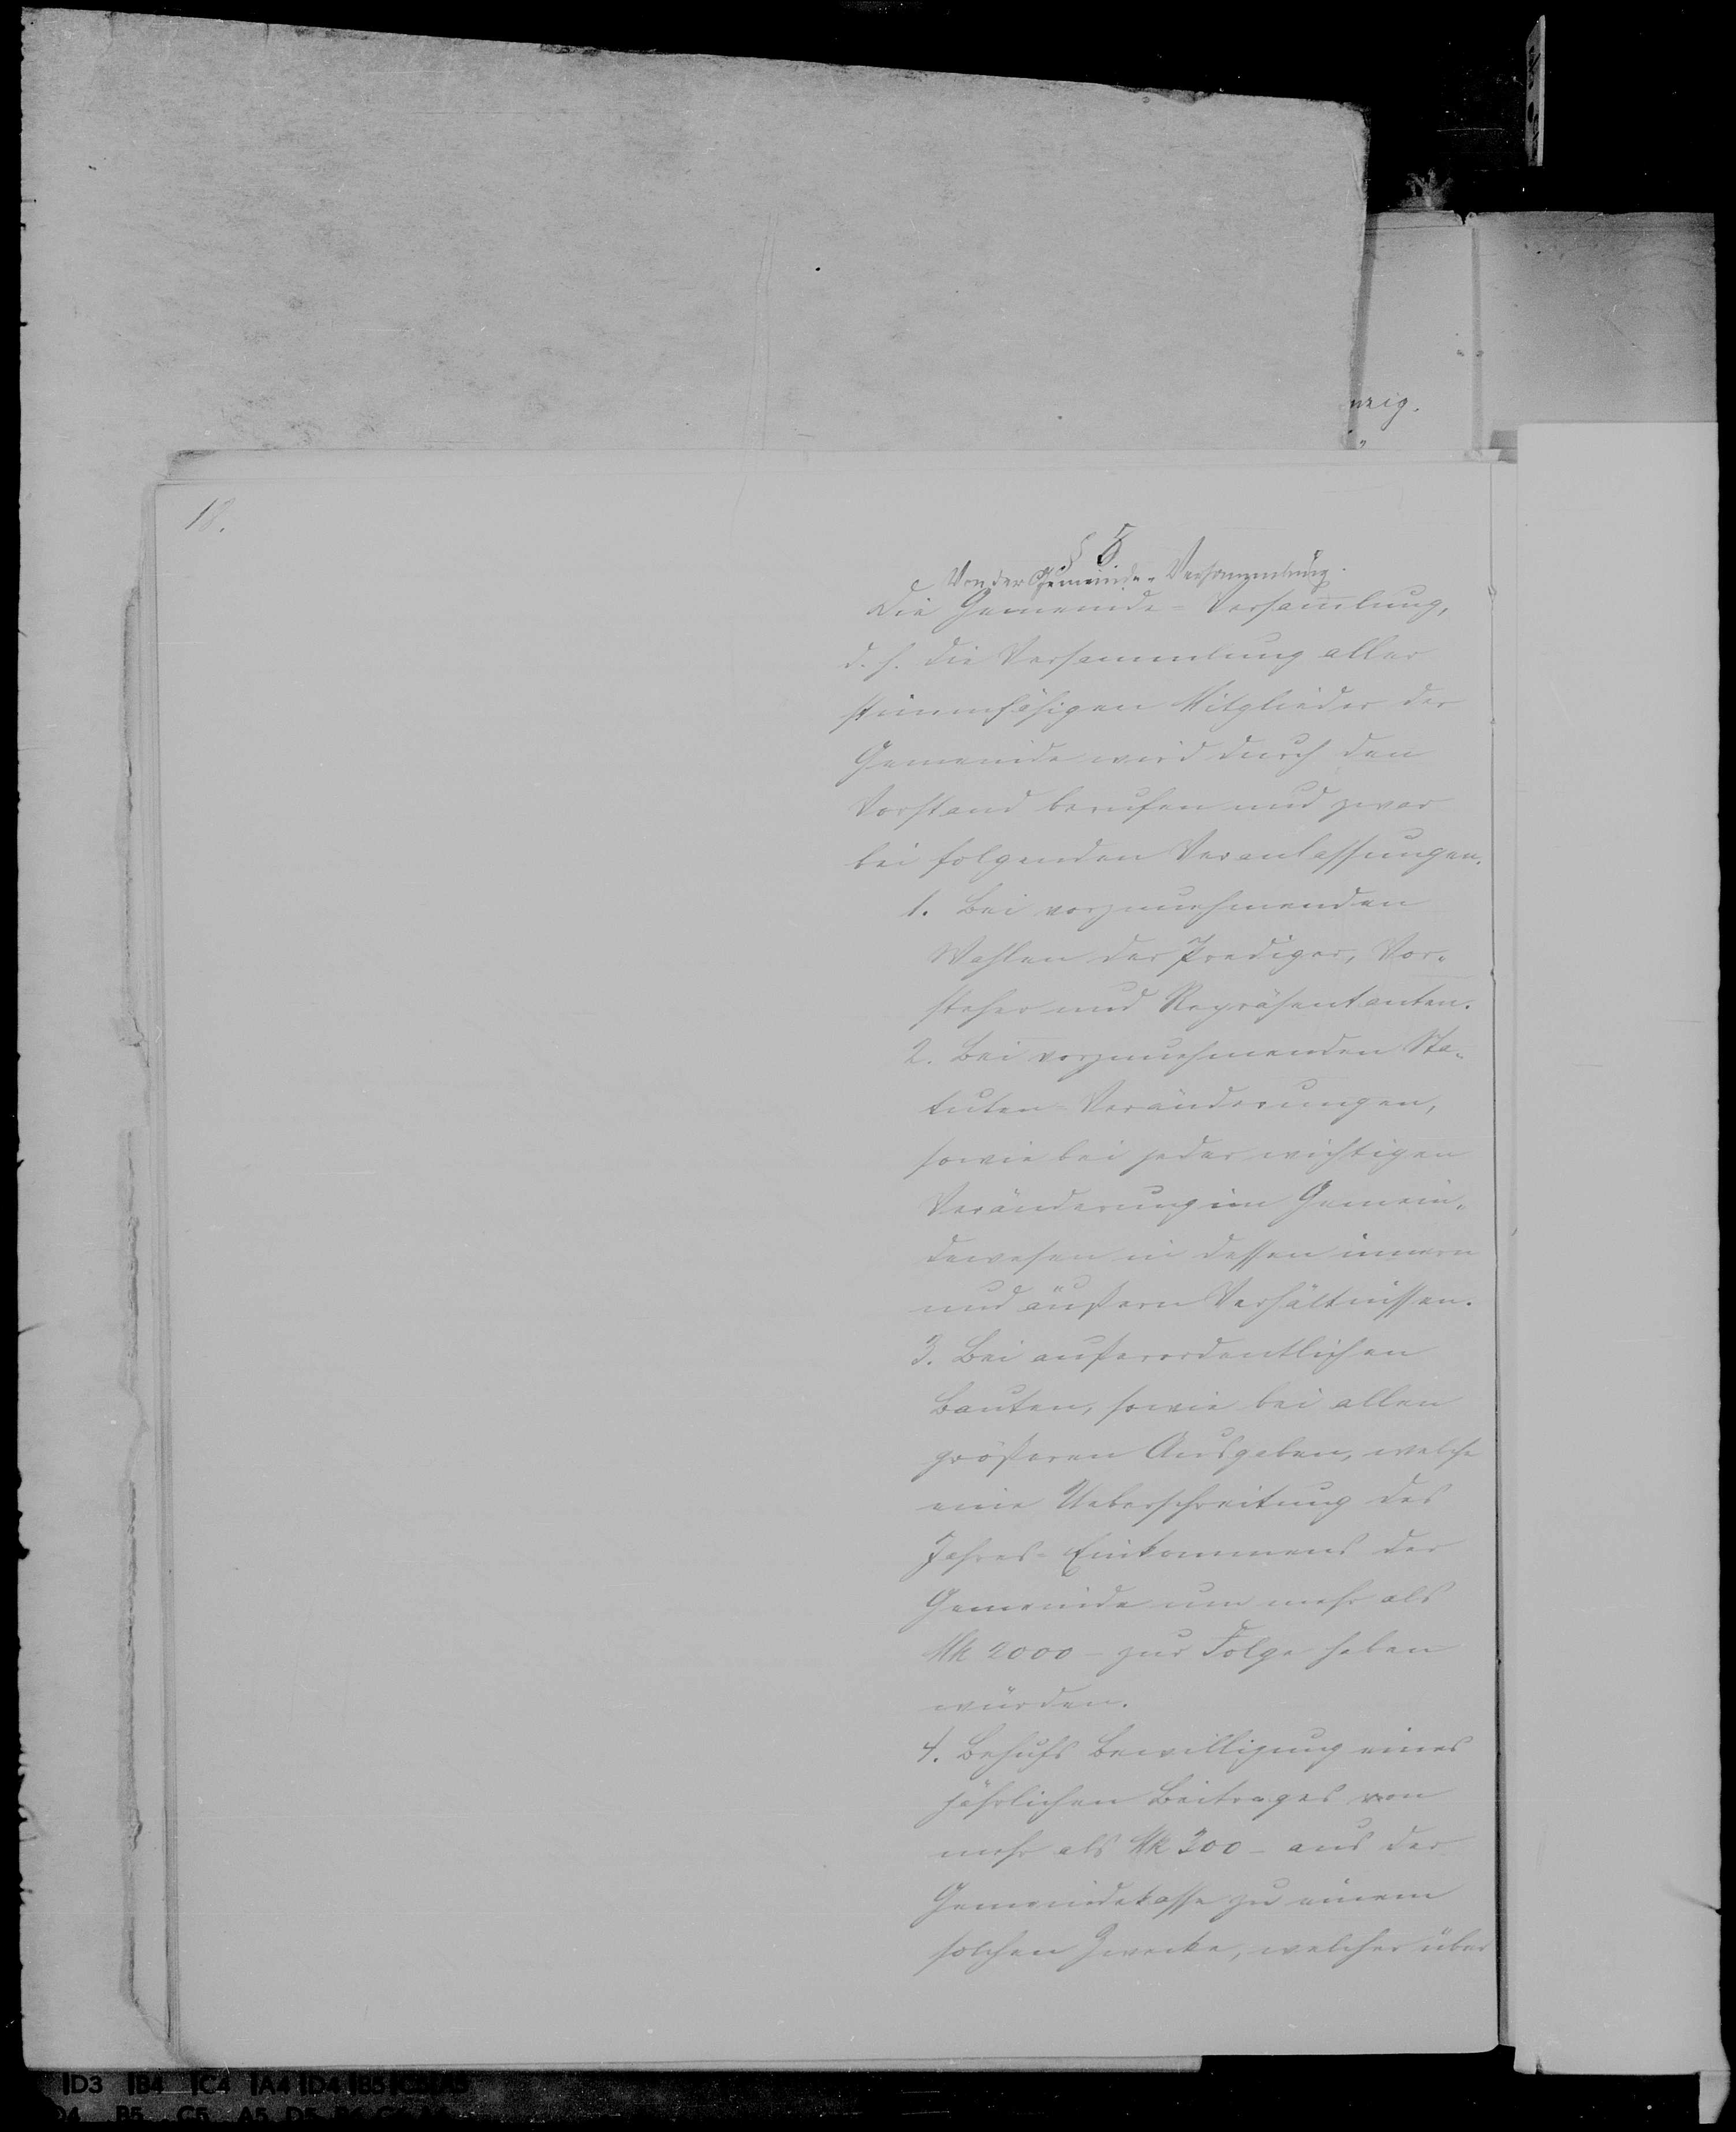 nzig.
18.
§ 5
Von der Gemeinde-Versammlung.
Die Gemeinde-Versamlung,
d. h. die Versammlung aller
stimmfähigen Mitglieder der
Gemeinde wird durch den
Vorstand berufen und zwar
bei folgenden Veranlassungen.
1. Bei vorzunehmenden
Wahlen der Prediger, Vor-
steher und Repräsentanten.
2. Bei vorzunehmenden Sta-
tuten-Veränderungen,
sowie bei jeder wichtigen
Veränderung im Gemein-
dewesen in dessen innern
und äußern Verhältnissen.
3. Bei außerordentlichen
Bauten, sowie bei allen
größeren Ausgaben, welche
eine Ueberschreitung des
Jahres-Einkommens der
Gemeinde um mehr als
Mk 2000 - zur Folge haben
würden.
4. Behufs Bewilligung eines
jährlichen Beitrages von
mehr als Mk 300 - aus der
Gemeindekasse zu einem
solchen Zwecke, welcher über
D3 B4 C4 A4 D4 B5
D4 B5 C5 A5 D5